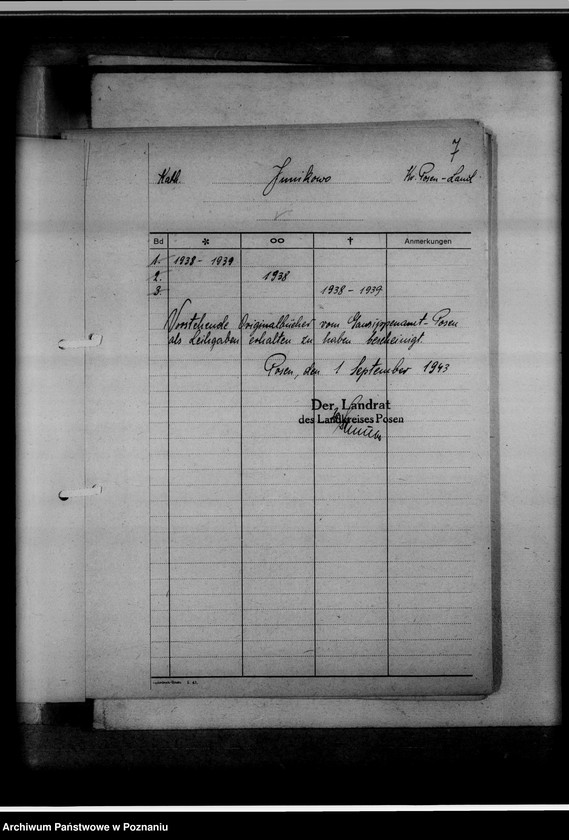 7
Kath. Junikowo Kr. Posen-Land
Bd * ∞ † Anmerkungen
1. 1938 - 1939
2. 1938
3. 1938 - 1939
Vorstehende Originalbücher vom Gausippenamt-Posen
als Leihgaben erhalten zu haben bescheinigt
Posen, den 1 September 1943
Der Landrat
des Landkreises Posen
Archiwum Państwowe w Poznaniu